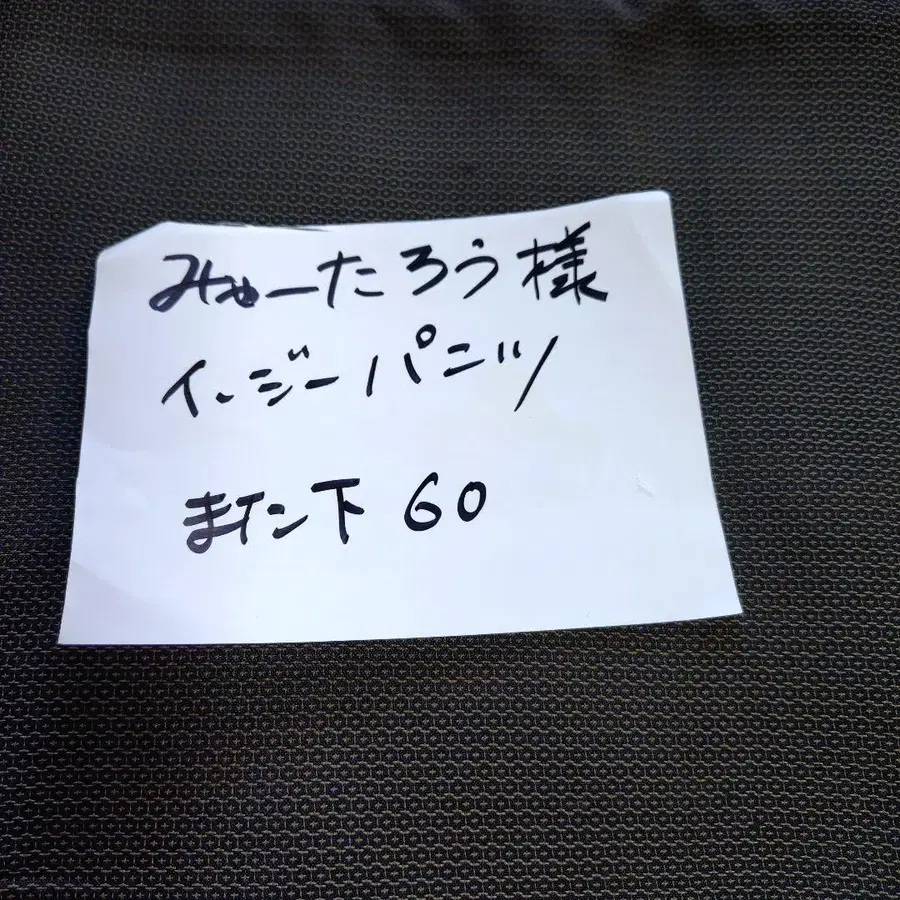 みゃーたろう様
イージーパンツ
また下 60